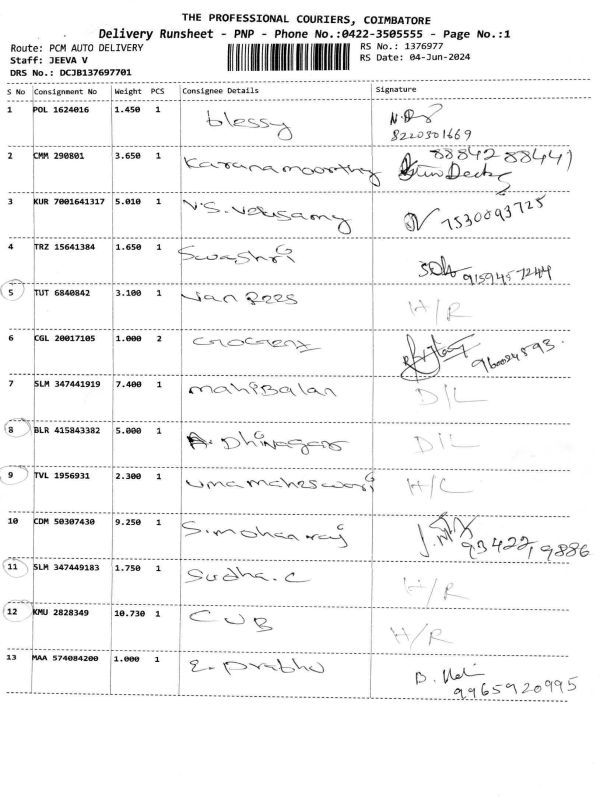 THE PROFESSIONAL COURIERS, COIMBATORE
Delivery Runsheet - PNP - Phone No.:0422-3505555 - Page No.:1
Route: PCM AUTO DELIVERY
RS No.: 1376977
Staff: JEEVA V
RS Date: 04-Jun-2024
DRS No.: DCJB137697701
S No Consignment No Weight PCS Consignee Details Signature
1 POL 1624016 1.450 1 blessy
8220301669
2 CMM 290801 3.650 1 Karanamoorthy
3 KUR 7001641317 5.010 1 V.S. Velusamy 7530093725
4 TRZ 15641384 1.650 1 Swashri 9159457244
5 TUT 6840842 3.100 1 H/R
6 CGL 20017105 1.000 2
7 SLM 347441919 7.400 1 mahibalan D/L
8 BLR 415843382 5.000 1 A. Dhinagar D/L
9 TVL 1956931 2.300 1 umamaheswari H/C
10 CDM 50307430 9.250 1 S. mohanraj
93422,9886
11 SLM 347449183 1.750 1 Sudha. C H/R
12 KMU 2828349 10.730 1 CUB H/R
13 MAA 574084200 1.000 1 E. prabhu
9965920995